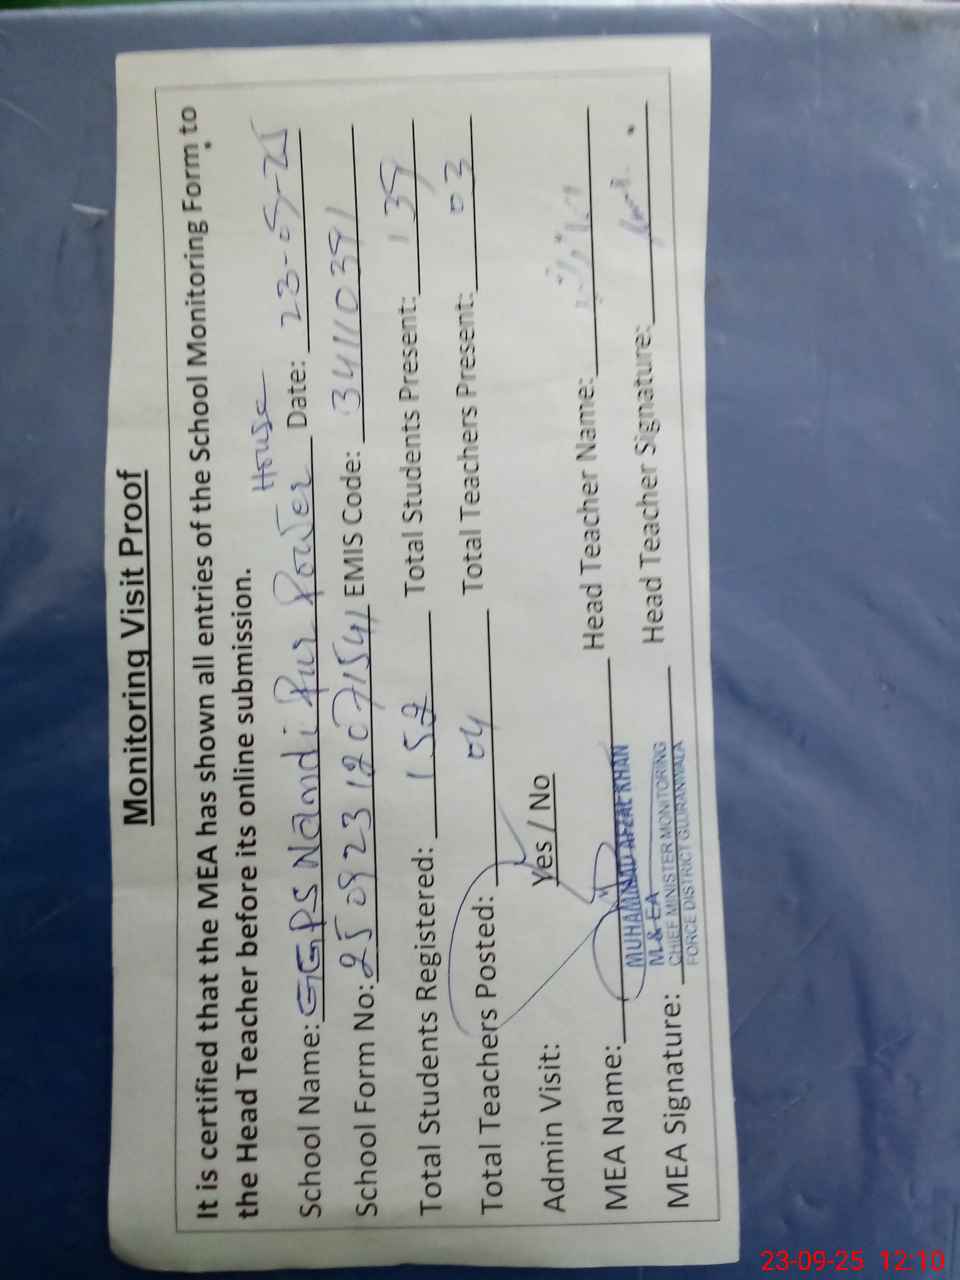 Monitoring Visit Proof
It is certified that the MEA has shown all entries of the School Monitoring Form to
the Head Teacher before its online submission.
School Name: GGPS Nandi Pur Power House Date: 23-09-25
School Form No: 25092312071541 EMIS Code: 34110391
Total Students Registered: 152 Total Students Present: 139
Total Teachers Posted: 04 Total Teachers Present: 03
Admin Visit: Yes / No
MEA Name: Head Teacher Name:
MUHAMMAD AFZAL KHAN
M.& EA
CHIEF MINISTER MONITORING
FORCE DISTRICT GUJRANWALA
MEA Signature: Head Teacher Signature:
23-09-25 12:10